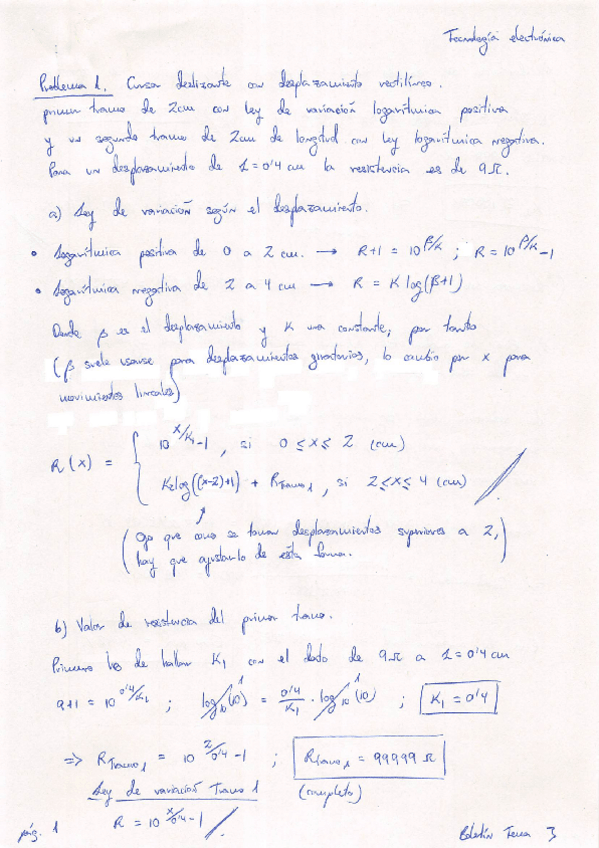 Tecnología electrónica
Problema 1. Cursor deslizante con desplazamiento rectilíneo.
primer tramo de 2cm con ley de variación logarítmica positiva
y un segundo tramo de 2cm de longitud con ley logarítmica negativa.
Para un desplazamiento de 1=0'4 cm la resistencia es de 9Ω.
a) Ley de variación según el desplazamiento.
• Logarítmica positiva de 0 a 2 cm. → R+1 = 10^(β/K) ; R = 10^(β/K) -1
• Logarítmica negativa de 2 a 4 cm → R = K log(β+1)
Donde β es el desplazamiento y K una constante; por tanto
(β suele usarse para desplazamientos giratorios, lo cambio por x para
movimientos lineales)
R(x) = { 10^(x/K1) -1 , si 0 ≤ x ≤ 2 (cm)
K2 log((x-2)+1) + RTramo1 , si 2 ≤ x ≤ 4 (cm)
(Ojo que como se toman desplazamientos superiores a 2,
hay que ajustarlo de esta forma.)
b) Valor de resistencia del primer tramo.
Primero he de hallar K1 con el dato de 9Ω a 1=0'4 cm
9+1 = 10^(0'4/K1) ; log10(10) 1 = 0'4/K1 · log10(10) 1 ; K1 = 0'4
⇒ RTramo1 = 10^(2/0'4) -1 ; RTramo1 = 99999 Ω
Ley de variación Tramo 1 (completo)
R = 10^(x/0'4) -1
pág. 1 Boletín Tema 3